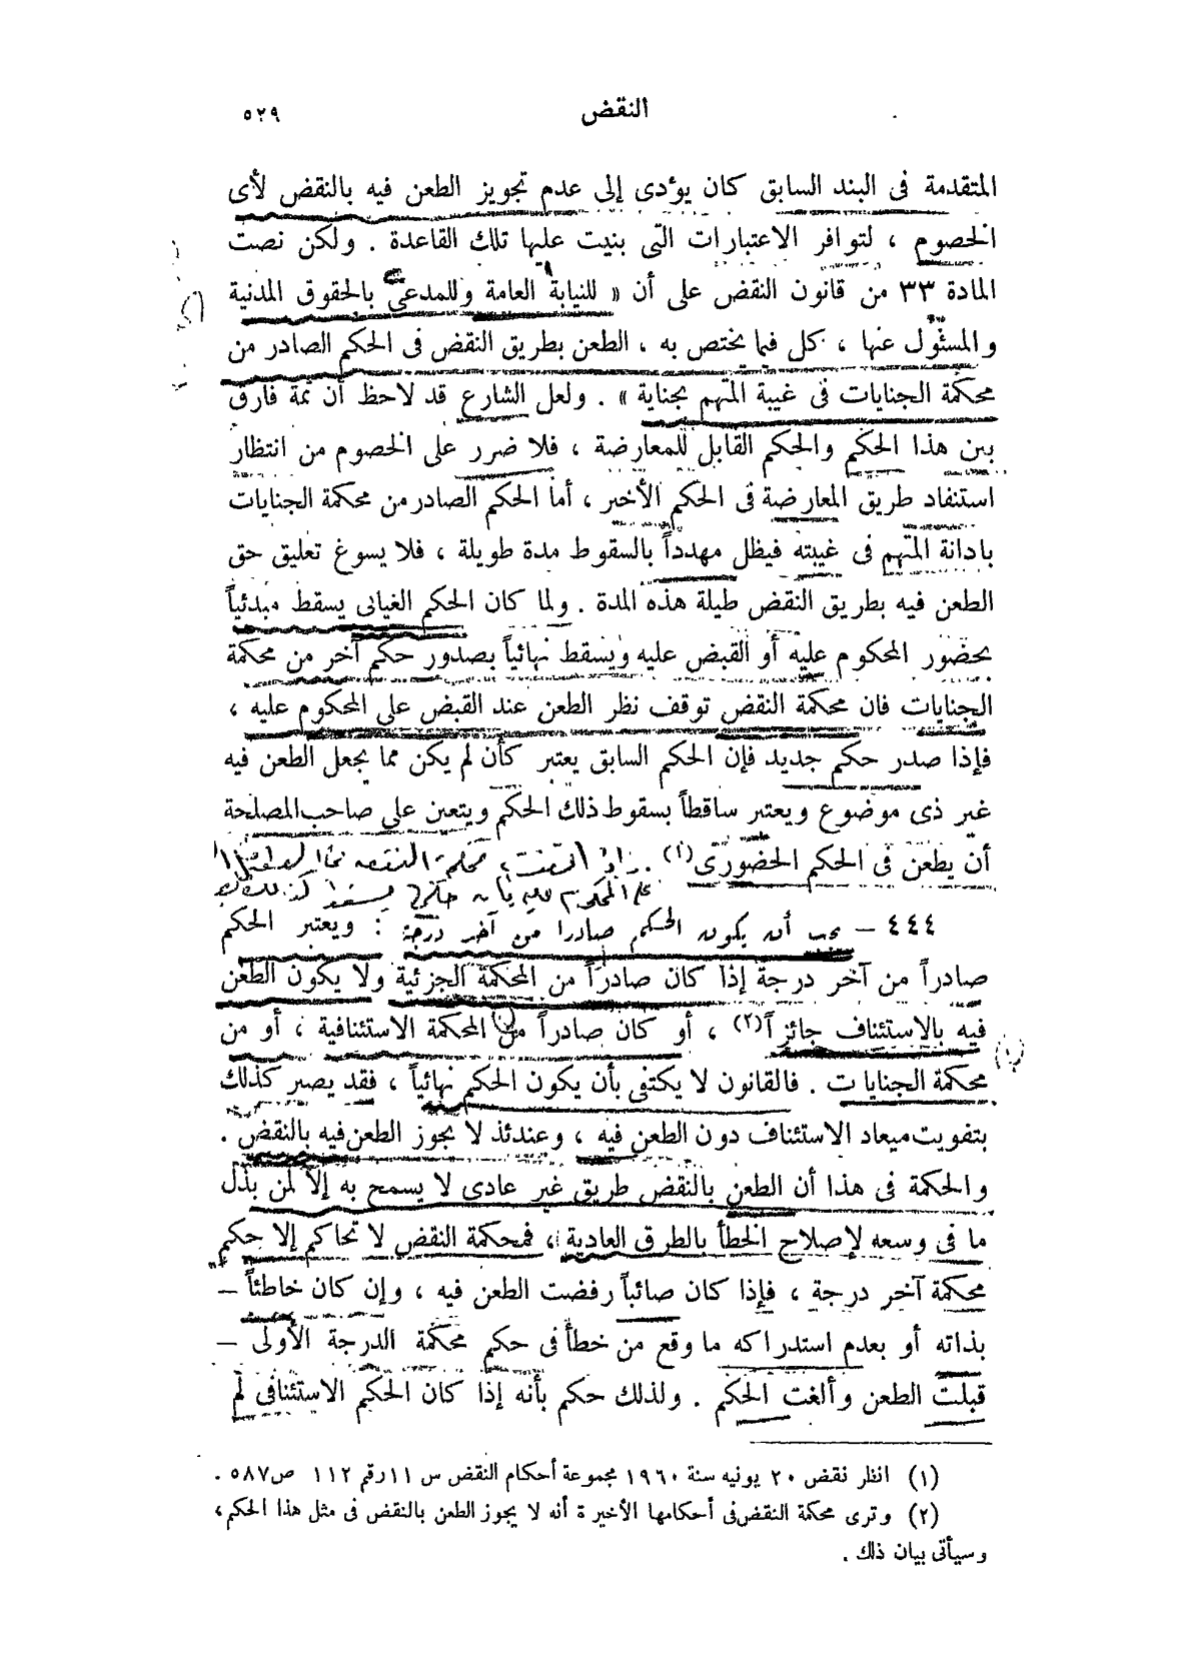 النقض ٥٢٩
المتقدمة فى البند السابق كان يؤدى إلى عدم تجويز الطعن فيه بالنقض لأى
الخصوم ، لتوافر الاعتبارات التى بنيت عليها تلك القاعدة . ولكن نصت
المادة ٣٣ من قانون النقض على أن « للنيابة العامة وللمدعى بالحقوق المدنية
والمسئول عنها ، كل فيما يختص به ، الطعن بطريق النقض فى الحكم الصادر من
محكمة الجنايات فى غيبة المتهم بجناية » . ولعل الشارع قد لاحظ أن ثمة فارق
بين هذا الحكم والحكم القابل للمعارضة ، فلا ضرر على الخصوم من انتظار
استنفاد طريق المعارضة فى الحكم الأخير ، أما الحكم الصادر من محكمة الجنايات
بادانة المتهم فى غيبته فيظل مهدداً بالسقوط مدة طويلة ، فلا يسوغ تعليق حق
الطعن فيه بطريق النقض طيلة هذه المدة . ولما كان الحكم الغيابى يسقط مبدئياً
بحضور المحكوم عليه أو القبض عليه ويسقط نهائياً بصدور حكم آخر من محكمة
الجنايات فان محكمة النقض توقف نظر الطعن عند القبض على المحكوم عليه ،
فإذا صدر حكم جديد فإن الحكم السابق يعتبر كأن لم يكن مما يجعل الطعن فيه
غير ذى موضوع ويعتبر ساقطاً بسقوط ذلك الحكم ويتعين على صاحب المصلحة
أن يطعن فى الحكم الحضورى (١) . محكمة النقض
على المحكوم عليه
٤٤٤ – يجب أن يكون الحكم صادرا من آخر درجة : ويعتبر الحكم
صادراً من آخر درجة إذا كان صادراً من المحكمة الجزئية ولا يكون الطعن
فيه بالاستئناف جائزاً (٢) ، أو كان صادراً من المحكمة الاستئنافية ، أو من
محكمة الجنايات . فالقانون لا يكتفى بأن يكون الحكم نهائياً ، فقد يصير كذلك
بتفويت ميعاد الاستئناف دون الطعن فيه ، وعندئذ لا يجوز الطعن فيه بالنقض .
والحكمة فى هذا أن الطعن بالنقض طريق غير عادى لا يسمح به إلا لمن بذل
ما فى وسعه لإصلاح الخطأ بالطرق العادية ، فمحكمة النقض لا تحاكم إلا حكم
محكمة آخر درجة ، فإذا كان صائباً رفضت الطعن فيه ، وإن كان خاطئاً –
بذاته أو بعدم استدراكه ما وقع من خطأ فى حكم محكمة الدرجة الأولى –
قبلت الطعن وألغت الحكم . ولذلك حكم بأنه إذا كان الحكم الاستئنافى لم
(١) انظر نقض ٢٠ يونيه سنة ١٩٦٠ مجموعة أحكام النقض س ١١ رقم ١١٢ ص ٥٨٧ .
(٢) وترى محكمة النقض فى أحكامها الأخيرة أنه لا يجوز الطعن بالنقض فى مثل هذا الحكم ،
وسيأتى بيان ذلك .